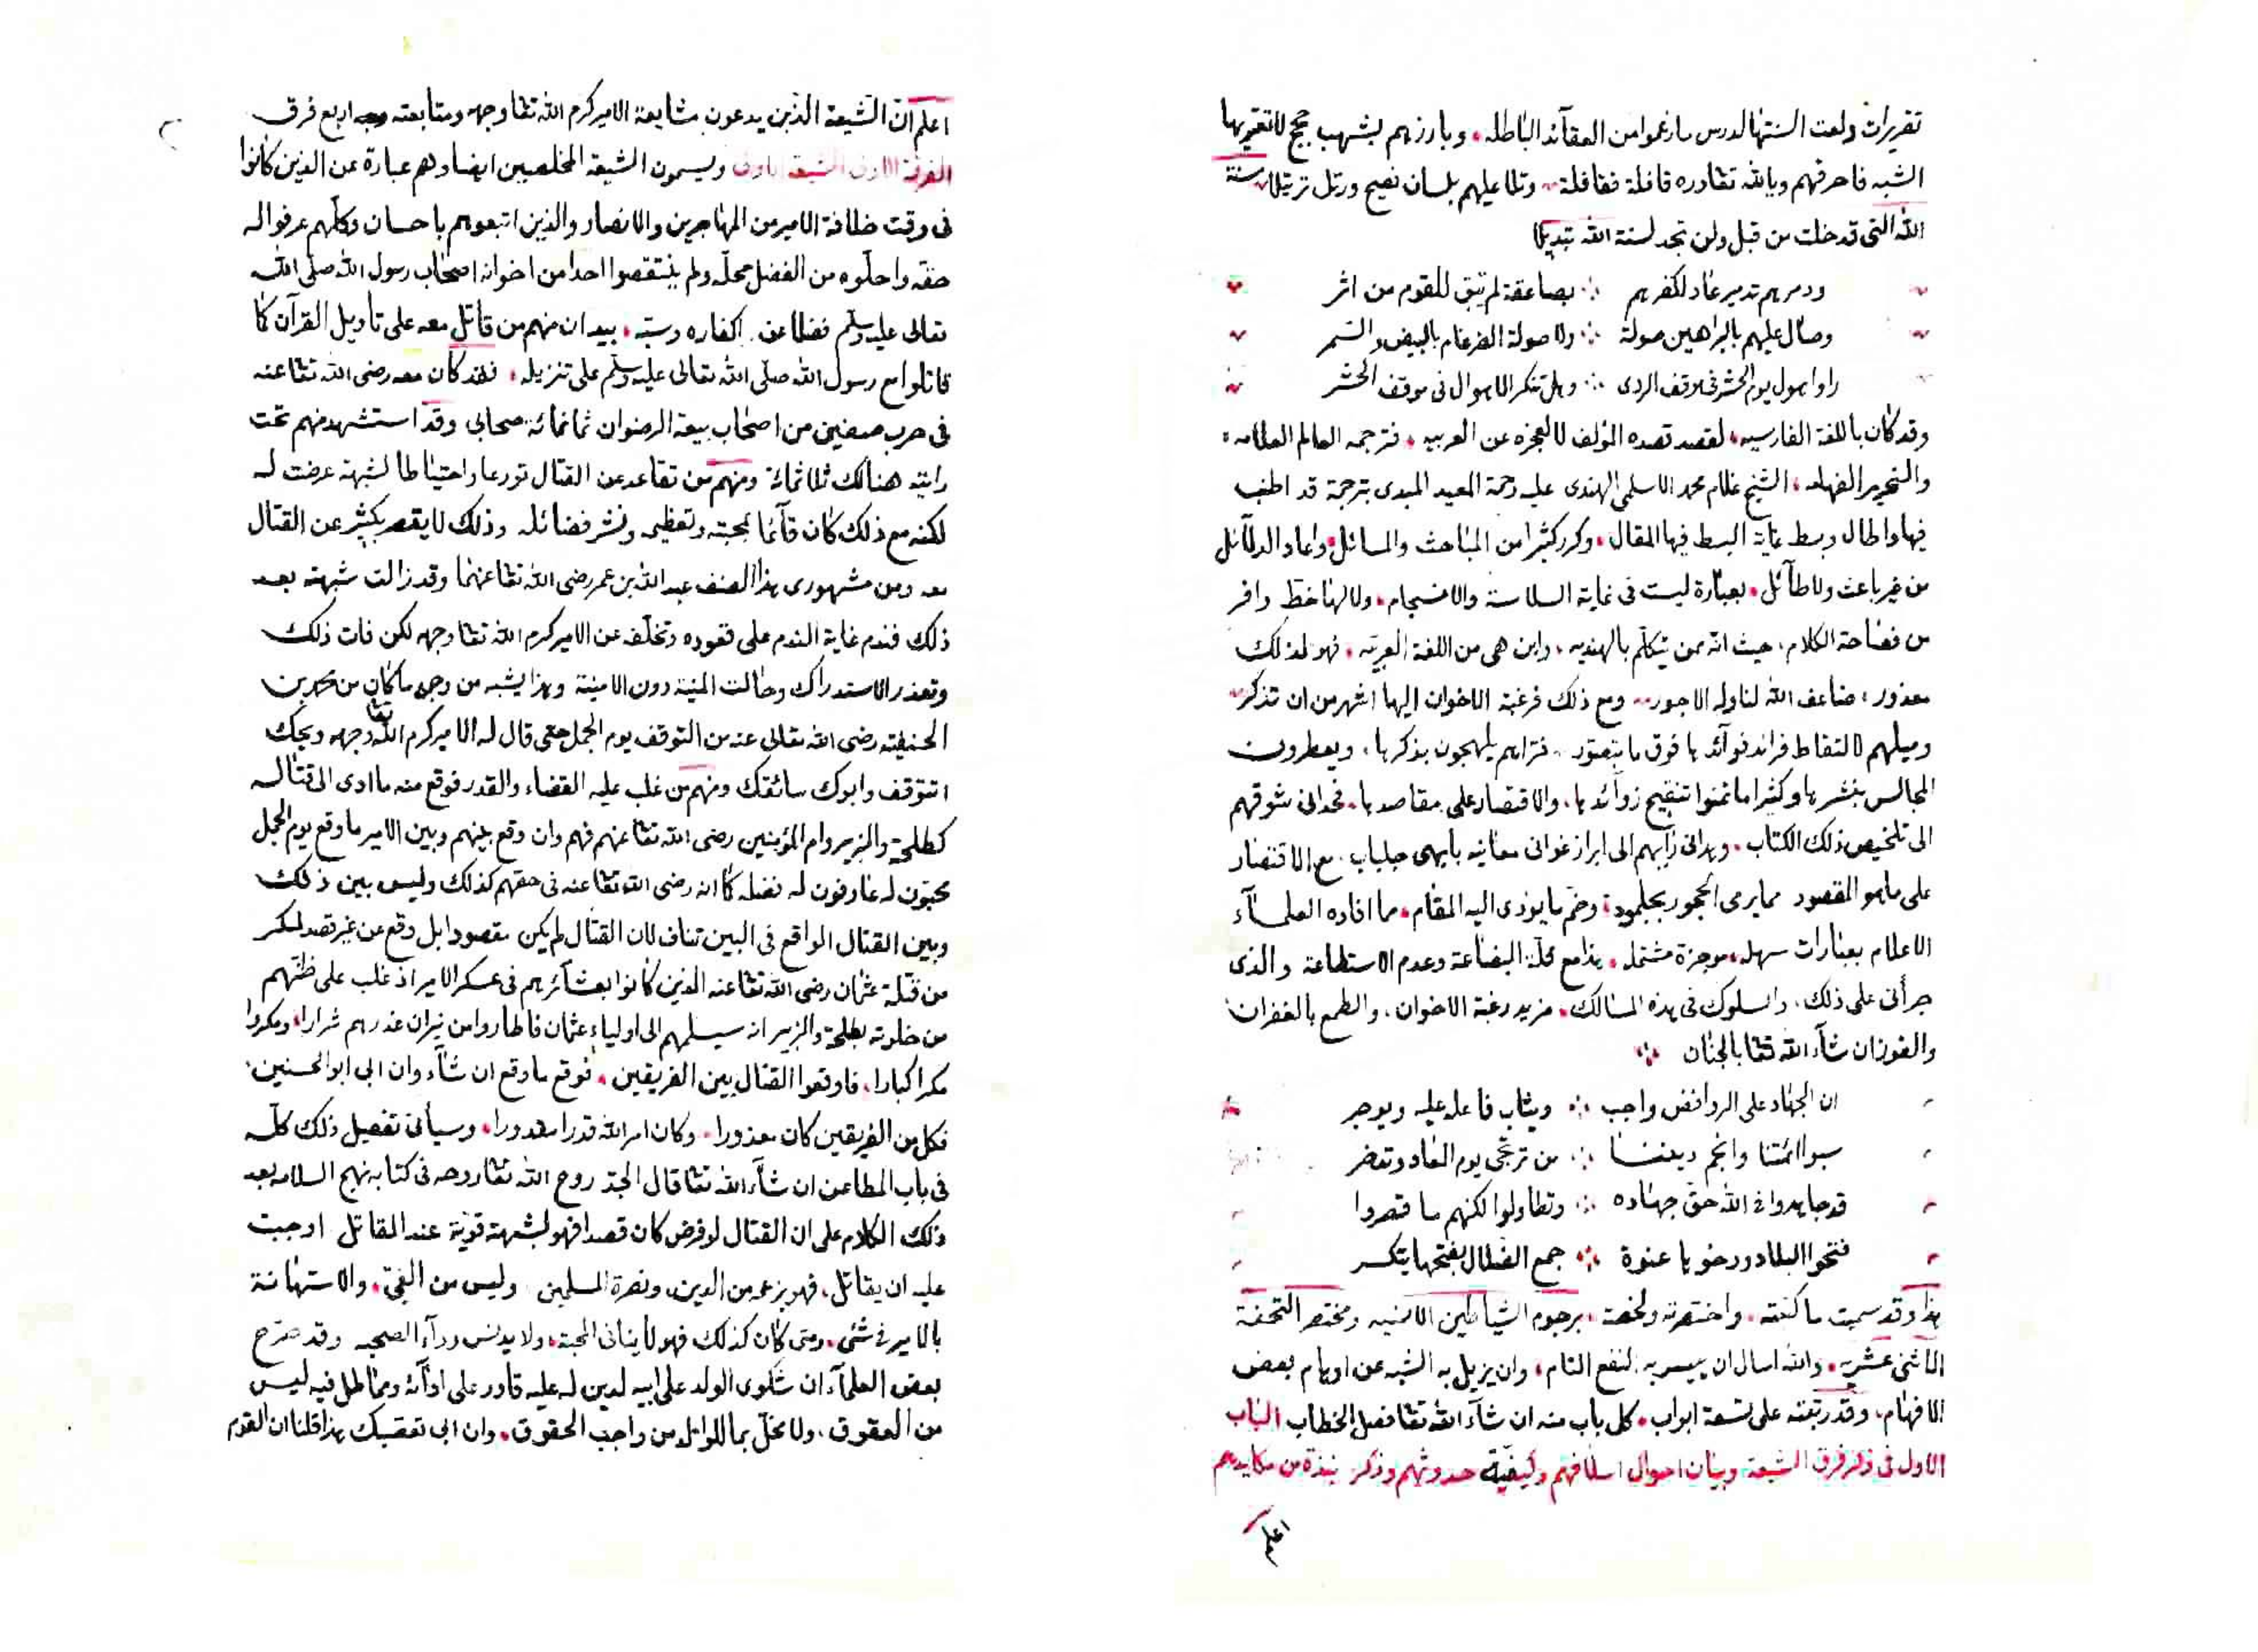 تقريرات ولعت السنتها لدرس ما زعموا من العقآئد الباطله، وبارزهم بشهب حجج لا تعتريها
الشبه فاحرقهم وبالله تعا دره قافلة فقافلة وتلا عليهم بلسان فصيح ورتل ترتيلا سنة
الله التى قد خلت من قبل ولن تجد لسنة الله تبديلا
ودمرهم تدمير عاد لكفرهم ∴ بصاعقة لم تبق للقوم من اثر
وصال عليهم بالبراهين صولة ∴ ولا صولة الضرغام بالبيض والسمر
راوا هول يوم الحشر فى موقف الردى ∴ وهل تنكر الاهوال فى موقف الحشر
وقد كان باللغة الفارسيه، لقصد قصده المؤلف لا لعجزه عن العربيه، فترجمه العالم العلامه،
والنحرير الفهامه، الشيخ غلام محمد الاسلمى الهندى عليه رحمة المعيد المبدى بترجمة قد اطنب
فيها واطال وبسط غاية البسط فيها المقال، وكرر كثيرا من المباحث والمسائل، واعاد الدلآئل
من غير باعث ولا طآئل، بعبارة ليست فى غاية السلاسة والانسجام، ولا لها حظ وافر
من فصاحة الكلام، حيث انه ممن يتكلم بالهنديه، واين هى من اللغة العربيه، فهو لذلك
معذور، ضاعف الله لنا وله الاجور، ومع ذلك فرغبة الاخوان اليها اشهر من ان تذكر
وميلهم لالتقاط فرائد فوآئدها فوق ما يتصور، فتراهم يلهجون بذكرها، ويعطرون
المجالس بنشرها وكثيرا ما تمنوا تنقيح زوآئدها، والاقتصار على مقاصدها، فحدانى شوقهم
الى تلخيص ذلك الكتاب، وهدانى رأيهم الى ابراز غوانى معانيه بابهى جلباب، مع الاقتصار
على ما هو المقصود مما يرمى الحجور بجلمود، وضم ما يؤدى اليه المقام، مما افاده العلمآء
الاعلام بعبارات سهله، موجزة مشتمله، هذا مع قلة البضاعة وعدم الاستطاعة والذى
جرأنى على ذلك، والسلوك فى هذه المسالك، مزيد رغبة الاخوان، والطمع بالغفران
والفوز ان شآء الله تعا بالجنان
ان الجهاد على الروافض واجب ∴ ويثاب فاعله عليه ويوجر
سبوا ائمتنا وانجم ديننا ∴ من ترتجى يوم المعاد وتعضر
قد جاهدوا فى الله حق جهاده ∴ وتطاولوا لكنهم ما قصروا
فتحوا البلاد ودرخوها عنوة ∴ جمع الضلال بفتحها يتكسر
هذا وقد سميت ما كتبته، واختصرته ولخصته، برجوم الشياطين الامنيه ومختصر التحفة
الاثنى عشريه، والله اسال ان ييسر به النفع التام، وان يزيل به الشبه عن اوهام بعض
الافهام، وقد رتبته على تسعة ابواب، كل باب منه ان شآء الله تعا فصل الخطاب الباب
الاول فى ذكر فرق الشيعة وبيان احوال اسلافهم وكيفية حدوثهم وذكر نبذة من مكايدهم
اعلم
اعلم ان الشيعة الذين يدعون مشايعة الامير كرم الله تعا وجهه ومتابعته اربع فرق
الفرقة الاولى الشيعة الاولى ويسمون الشيعة المخلصين ايضا وهم عبارة عن الذين كانوا
فى وقت خلافة الامير من المهاجرين والانصار والذين اتبعوهم باحسان وكلهم عرفوا له
حقه واحلوه من الفضل محله ولم ينتقصوا احدا من اخوانه اصحاب رسول الله صلى الله
تعالى عليه وسلم فضلا عن اكفاره وسبه، بيد ان منهم من قاتل معه على تأويل القرآن كما
قاتلوا مع رسول الله صلى الله تعالى عليه وسلم على تنزيله، فقد كان معه رضى الله تعا عنه
فى حرب صفين من اصحاب بيعة الرضوان ثمانمائة صحابى وقد استشهد منهم تحت
رايته هنالك ثلاثمائة ومنهم من تقاعد عن القتال تورعا واحتياطا لشبهة عرضت له
لكنه مع ذلك كان قآئما بمحبته وتعظيمه ونشر فضائله وذلك لا يقصر بكثير عن القتال
معه ومن مشهورى هذا الصنف عبد الله بن عمر رضى الله تعا عنهما وقد زالت شبهته بعد
ذلك فندم غاية الندم على قعوده وتخلفه عن الامير كرم الله تعا وجهه لكن فات ذلك
وتعذر الاستدراك وحالت المنية دون الامنية وهذا يشبه من وجه ما كان من محمد بن
الحنفية رضى الله تعالى عنه من التوقف يوم الجمل حتى قال له الامير كرم الله تعا وجهه ويحك
اتتوقف وابوك سائقك ومنهم من غلب عليه القضاء والقدر فوقع منه ما ادى الى قتاله
كطلحة والزبير وام المؤمنين رضى الله تعا عنهم فهم وان وقع بينهم وبين الامير ما وقع يوم الجمل
محبون له عارفون له فضله كما انه رضى الله تعا عنه فى حقهم كذلك وليس بين ذلك
وبين القتال الواقع فى البين تناف لان القتال لم يكن مقصودا بل وقع عن غير قصد لمكر
من قتلة عثمان رضى الله تعا عنه الذين كانوا بعشآئرهم فى عسكر الامير اذ غلب على ظنهم
من خلوته بطلحة والزبير انه سيسلمهم الى اولياء عثمان فاطاروا من نيران غدرهم شرارا، ومكروا
مكرا كبارا، فاوقعوا القتال بين الفريقين، فوقع ما وقع ان شآء وان ابى ابو الحسنين،
فكل من الفريقين كان معذورا، وكان امر الله قدرا مقدورا، وسيأتى تفصيل ذلك كله
فى باب المطاعن ان شآء الله تعا قال الجد روح الله تعا روحه فى كتابه نهج السلامه بعد
ذلك الكلام على ان القتال لو فرض كان قصدا فهو لشبهة قوية عند المقاتل اوجبت
عليه ان يقاتل، فهو بزعمه من الدين، ونصرة المسلمين وليس من الغى، والاستهانة
بالامير فى شئ، ومتى كان كذلك فهو لا ينافى المحبة، ولا يدنس ردآء الصحبه وقد صرح
بعض العلمآء ان شكوى الولد على ابيه لدين له عليه قادر على ادآئه ومماطل فيه ليس
من العقوق، ولا مخل بما للوالد من واجب الحقوق، وان ابى تعصبك هذا قلنا ان القوم